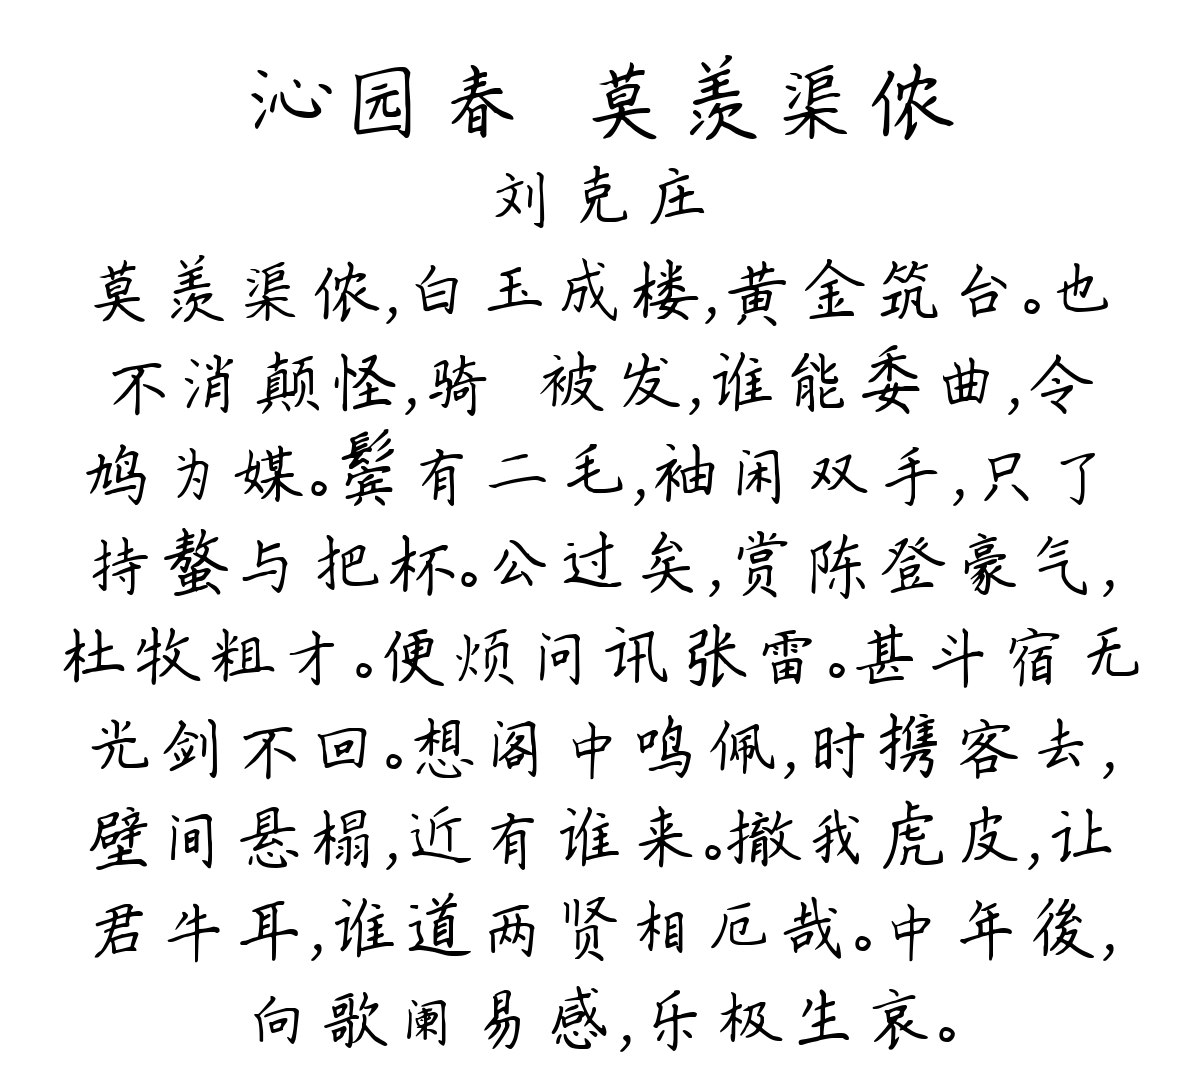 沁园春 莫羡渠侬
刘克庄
莫羡渠侬,白玉成楼,黄金筑台。也
不消颠怪,骑 被发,谁能委曲,令
鸠为媒。鬓有二毛,袖闲双手,只了
持螯与把杯。公过矣,赏陈登豪气,
杜牧粗才。便烦问讯张雷。甚斗宿无
光剑不回。想阁中鸣佩,时携客去,
壁间悬榻,近有谁来。撤我虎皮,让
君牛耳,谁道两贤相厄哉。中年後,
向歌阑易感,乐极生哀。